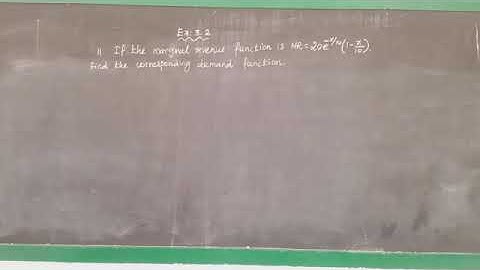 Ex: 3.2
11 If the marginal revenue function is MR = 20e^{-x/10}(1 - x/10).
Find the corresponding demand function.